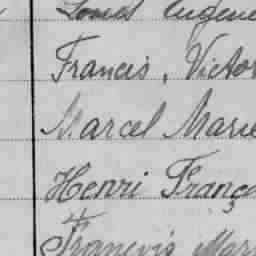 Louis Eugene
Francis, Victor
Marcel Marie
Henri Franç
François Mar